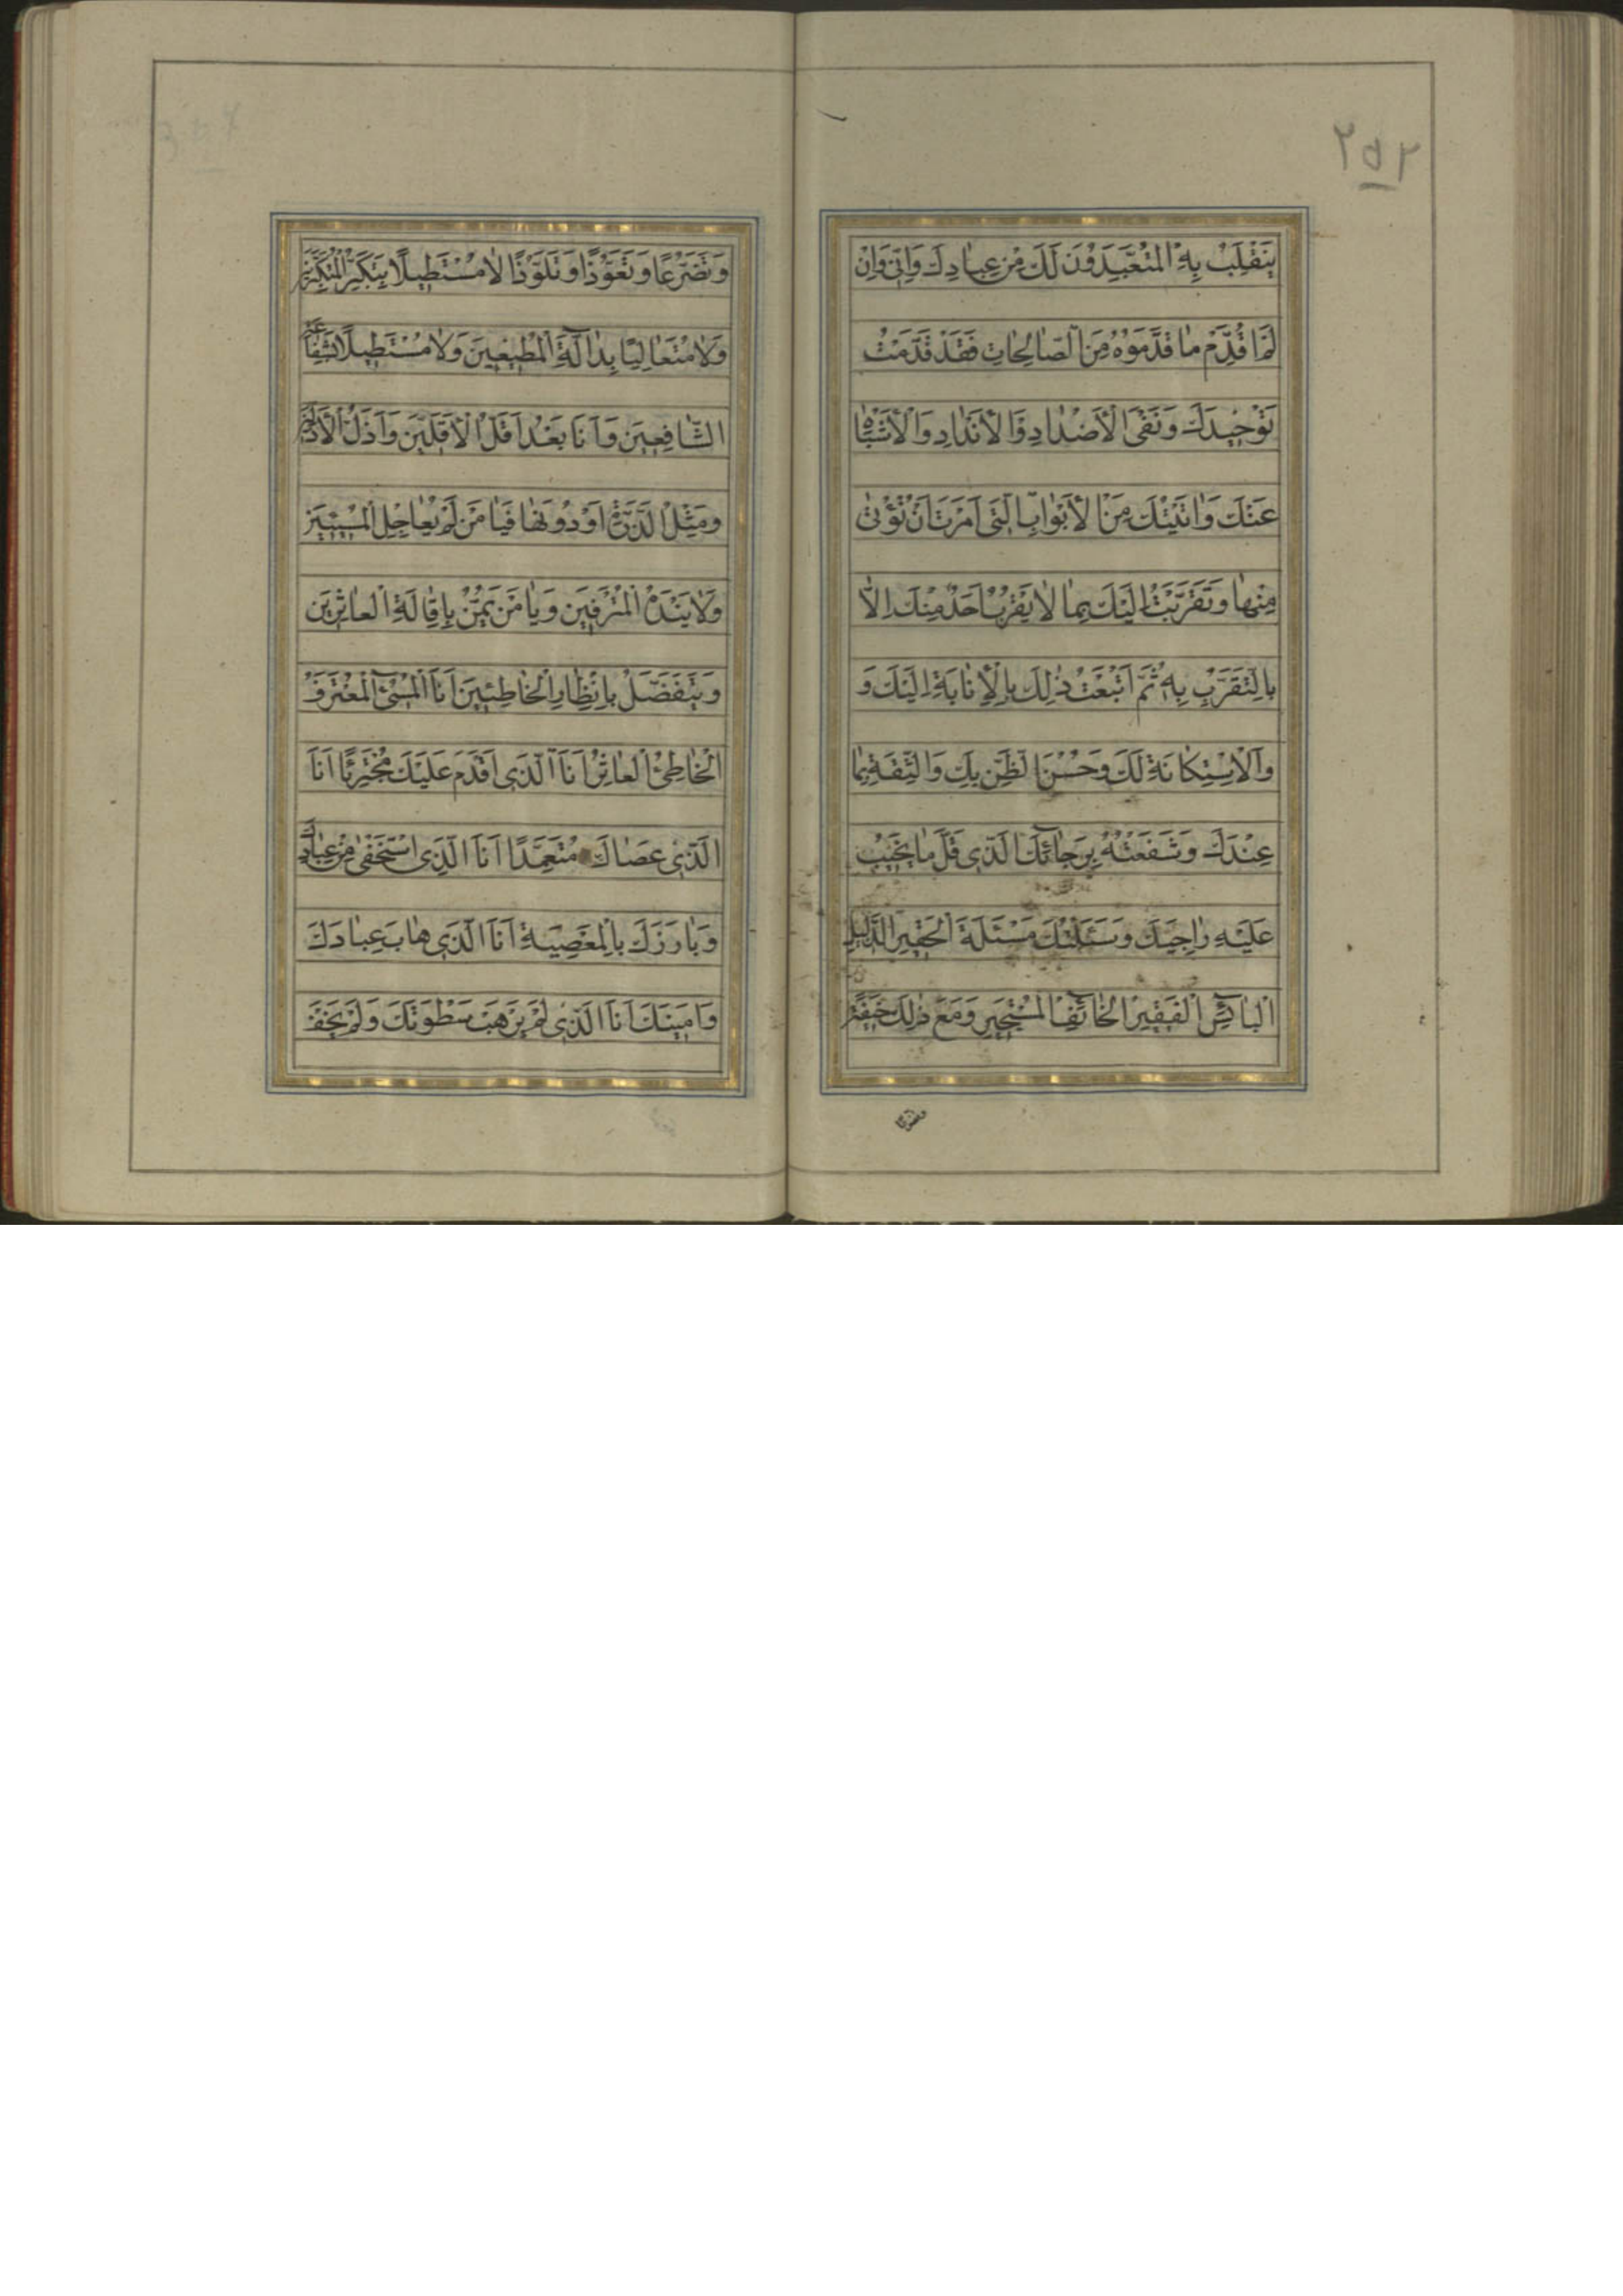 ٢٥٢
يَنْقَلِبُ بِهِ الْمُتَعَبِّدُونَ لَكَ مِنْ عِبادِكَ وَاِنّى وَاِنْ
لَمْ اُقَدِّمْ ما قَدَّمَوُهُ مِنَ الصّالِحاتِ فَقَدْ قَدَّمْتُ
تَوْحيدَكَ وَنَفْىَ الْأَضْدادِ وَالْأَنْدادِ وَالْأَشْباهِ
عَنْكَ وَاَتَيْتُكَ مِنَ الْأَبْوابِ الَّتى اَمَرْتَ اَنْ تُؤْتىٰ
مِنْها وَتَقَرَّبْتُ اِلَيْكَ بِما لا يَقْرُبُ اَحَدٌ مِنْكَ اِلّا
بِالتَّقَرُّبِ بِهِ ثُمَّ اَتْبَعْتُ ذٰلِكَ بِالْإِنابَةِ اِلَيْكَ وَ
وَالْاِسْتِكانَةِ لَكَ وَحُسْنِ الظَّنِّ بِكَ وَالثِّقَةِ بِما
عِنْدَكَ وَشَفَعْتُهُ بِرَجائِكَ الَّذى قَلَّ ما يَخيبُ
عَلَيْهِ راجيكَ وَسَئَلْتُكَ مَسْئَلَةَ الْحَقيرِ الذَّليلِ
الْبائِسِ الْفَقيرِ الْخائِفِ الْمُسْتَجيرِ وَمَعَ ذٰلِكَ خيفَةً
وَتَضَرُّعًا
وَتَضَرُّعًا وَتَعَوُّذًا وَتَلَوُّذًا لا مُسْتَطيلًا بِتَكَبُّرِ الْمُتَكَبِّرينَ
وَلا مُتَعالِيًا بِدالَّةِ الْمُطيعينَ وَلا مُسْتَطيلًا بِشَفاعَةِ
الشّافِعينَ وَاَنَا بَعْدُ اَقَلُّ الْأَقَلّينَ وَاَذَلُّ الْأَذَلّينَ
وَمِثْلُ الذَّرَّةِ اَوْ دُونَها فَيا مَنْ لَمْ يُعاجِلِ الْمُسيئينَ
وَلا يَنْدَهُ الْمُتْرَفينَ وَيا مَنْ يَمُنُّ بِاِقالَةِ الْعاثِرينَ
وَيَتَفَضَّلُ بِاِنْظارِ الْخاطِئينَ اَنَا الْمُسئُ الْمُعْتَرِفُ
الْخاطِئُ الْعاثِرُ اَنَا الَّذى اَقْدَمَ عَلَيْكَ مُجْتَرِئًا اَنَا
الَّذى عَصاكَ مُتَعَمِّدًا اَنَا الَّذى اسْتَخْفىٰ مِنْ عِبادِكَ
وَبارَزَكَ بِالْمَعْصِيَةِ اَنَا الَّذى هابَ عِبادَكَ
وَاَمِنَكَ اَنَا الَّذى لَمْ يَرْهَبْ سَطْوَتَكَ وَلَمْ يَخَفْ